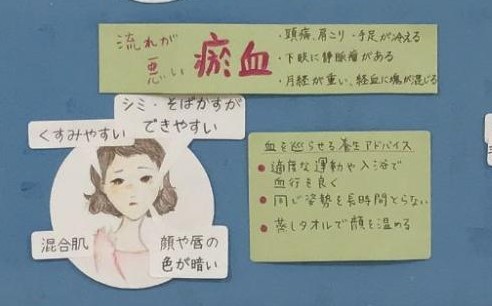 流れが
悪い
瘀血
・頭痛、肩こり・手足が冷える
・下肢に静脈瘤がある
・月経が重い、経血に塊が混じる
シミ・そばかすが
できやすい
くすみやすい
混合肌
顔や唇の
色が暗い
血を巡らせる養生アドバイス
適度な運動や入浴で
血行を良く
同じ姿勢を長時間とらない
蒸しタオルで顔を温める